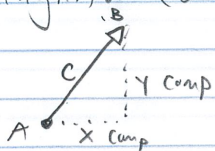 B
C
Y Comp
A
X Comp